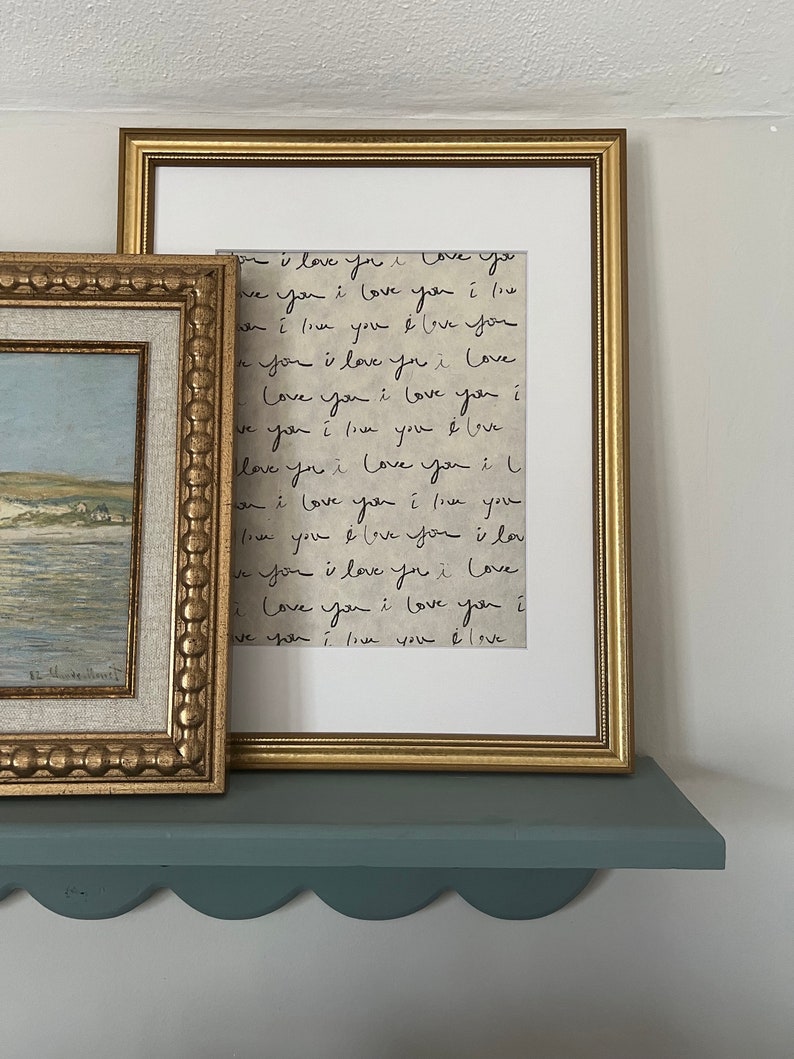 you i love you i love you
ove you i love you i love
you i love you i love you
ve you i love you i love
i love you i love you i
ve you i love you i love
love you i love you i l
you i love you i love you
love you i love you i lov
ve you i love you i love
i love you i love you i
ve you i love you i love
Claude Monet